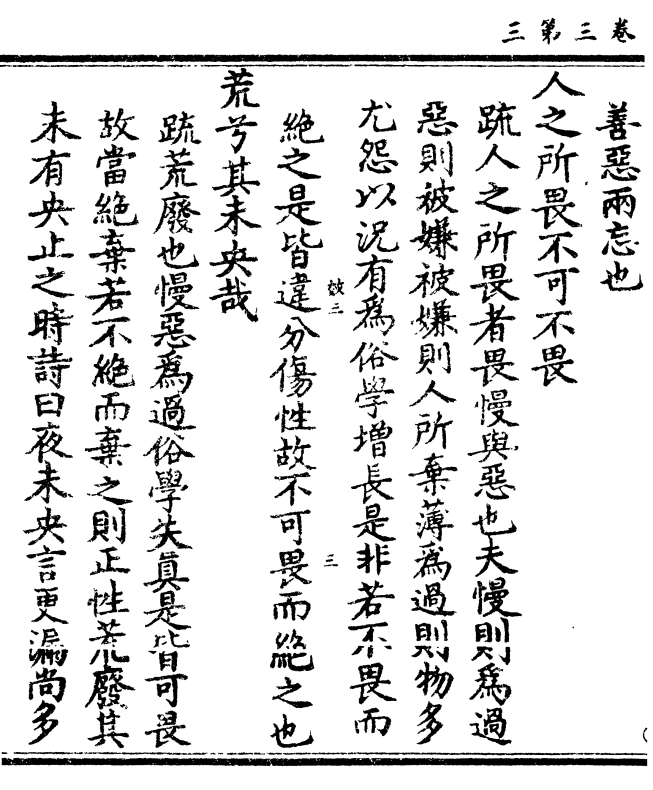 三第三卷
善惡兩忘也
人之所畏不可不畏
疏人之所畏者畏慢與惡也夫慢則爲過
惡則被嫌被嫌則人所棄薄爲過則物多
尤怨以況有爲俗學增長是非若不畏而
絕之是皆違分傷性故不可畏而絕之也
三
荒兮其未央哉
疏荒廢也慢惡爲過俗學失眞是皆可畏
故當絕棄若不絕而棄之則正性荒廢其
未有央止之時詩曰夜未央言更漏尚多